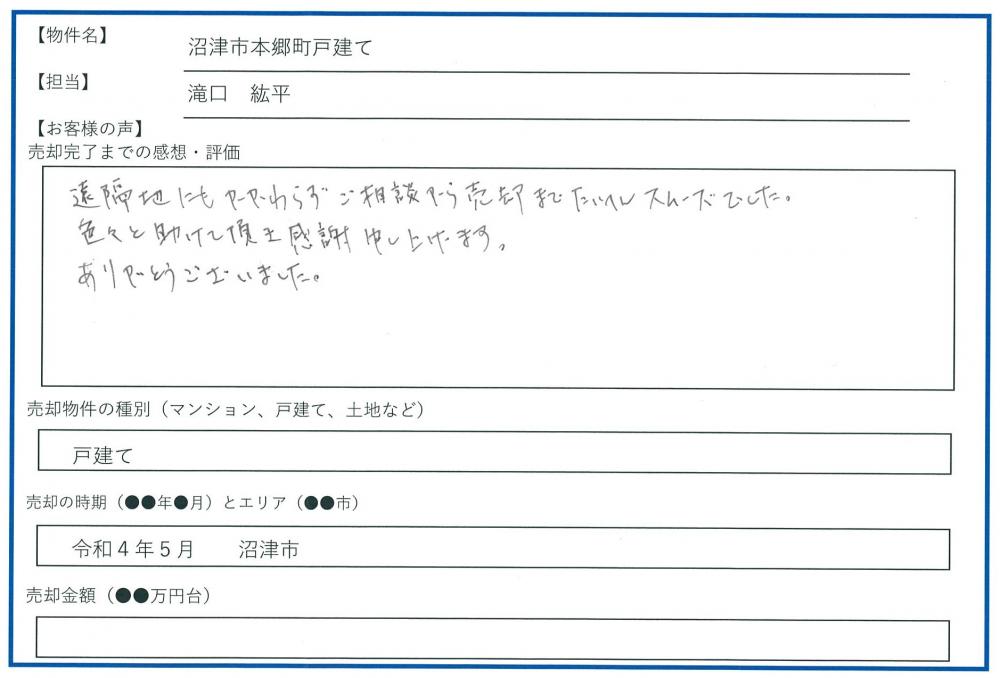 【物件名】
沼津市本郷町戸建て
【担当】
滝口 紘平
【お客様の声】
売却完了までの感想・評価
遠隔地にもかかわらずご相談から売却までたいへんスムーズでした。
色々と助けて頂き感謝申し上げます。
ありがとうございました。
売却物件の種別(マンション、戸建て、土地など)
戸建て
売却の時期(●●年●月)とエリア(●●市)
令和4年5月 沼津市
売却金額(●●万円台)